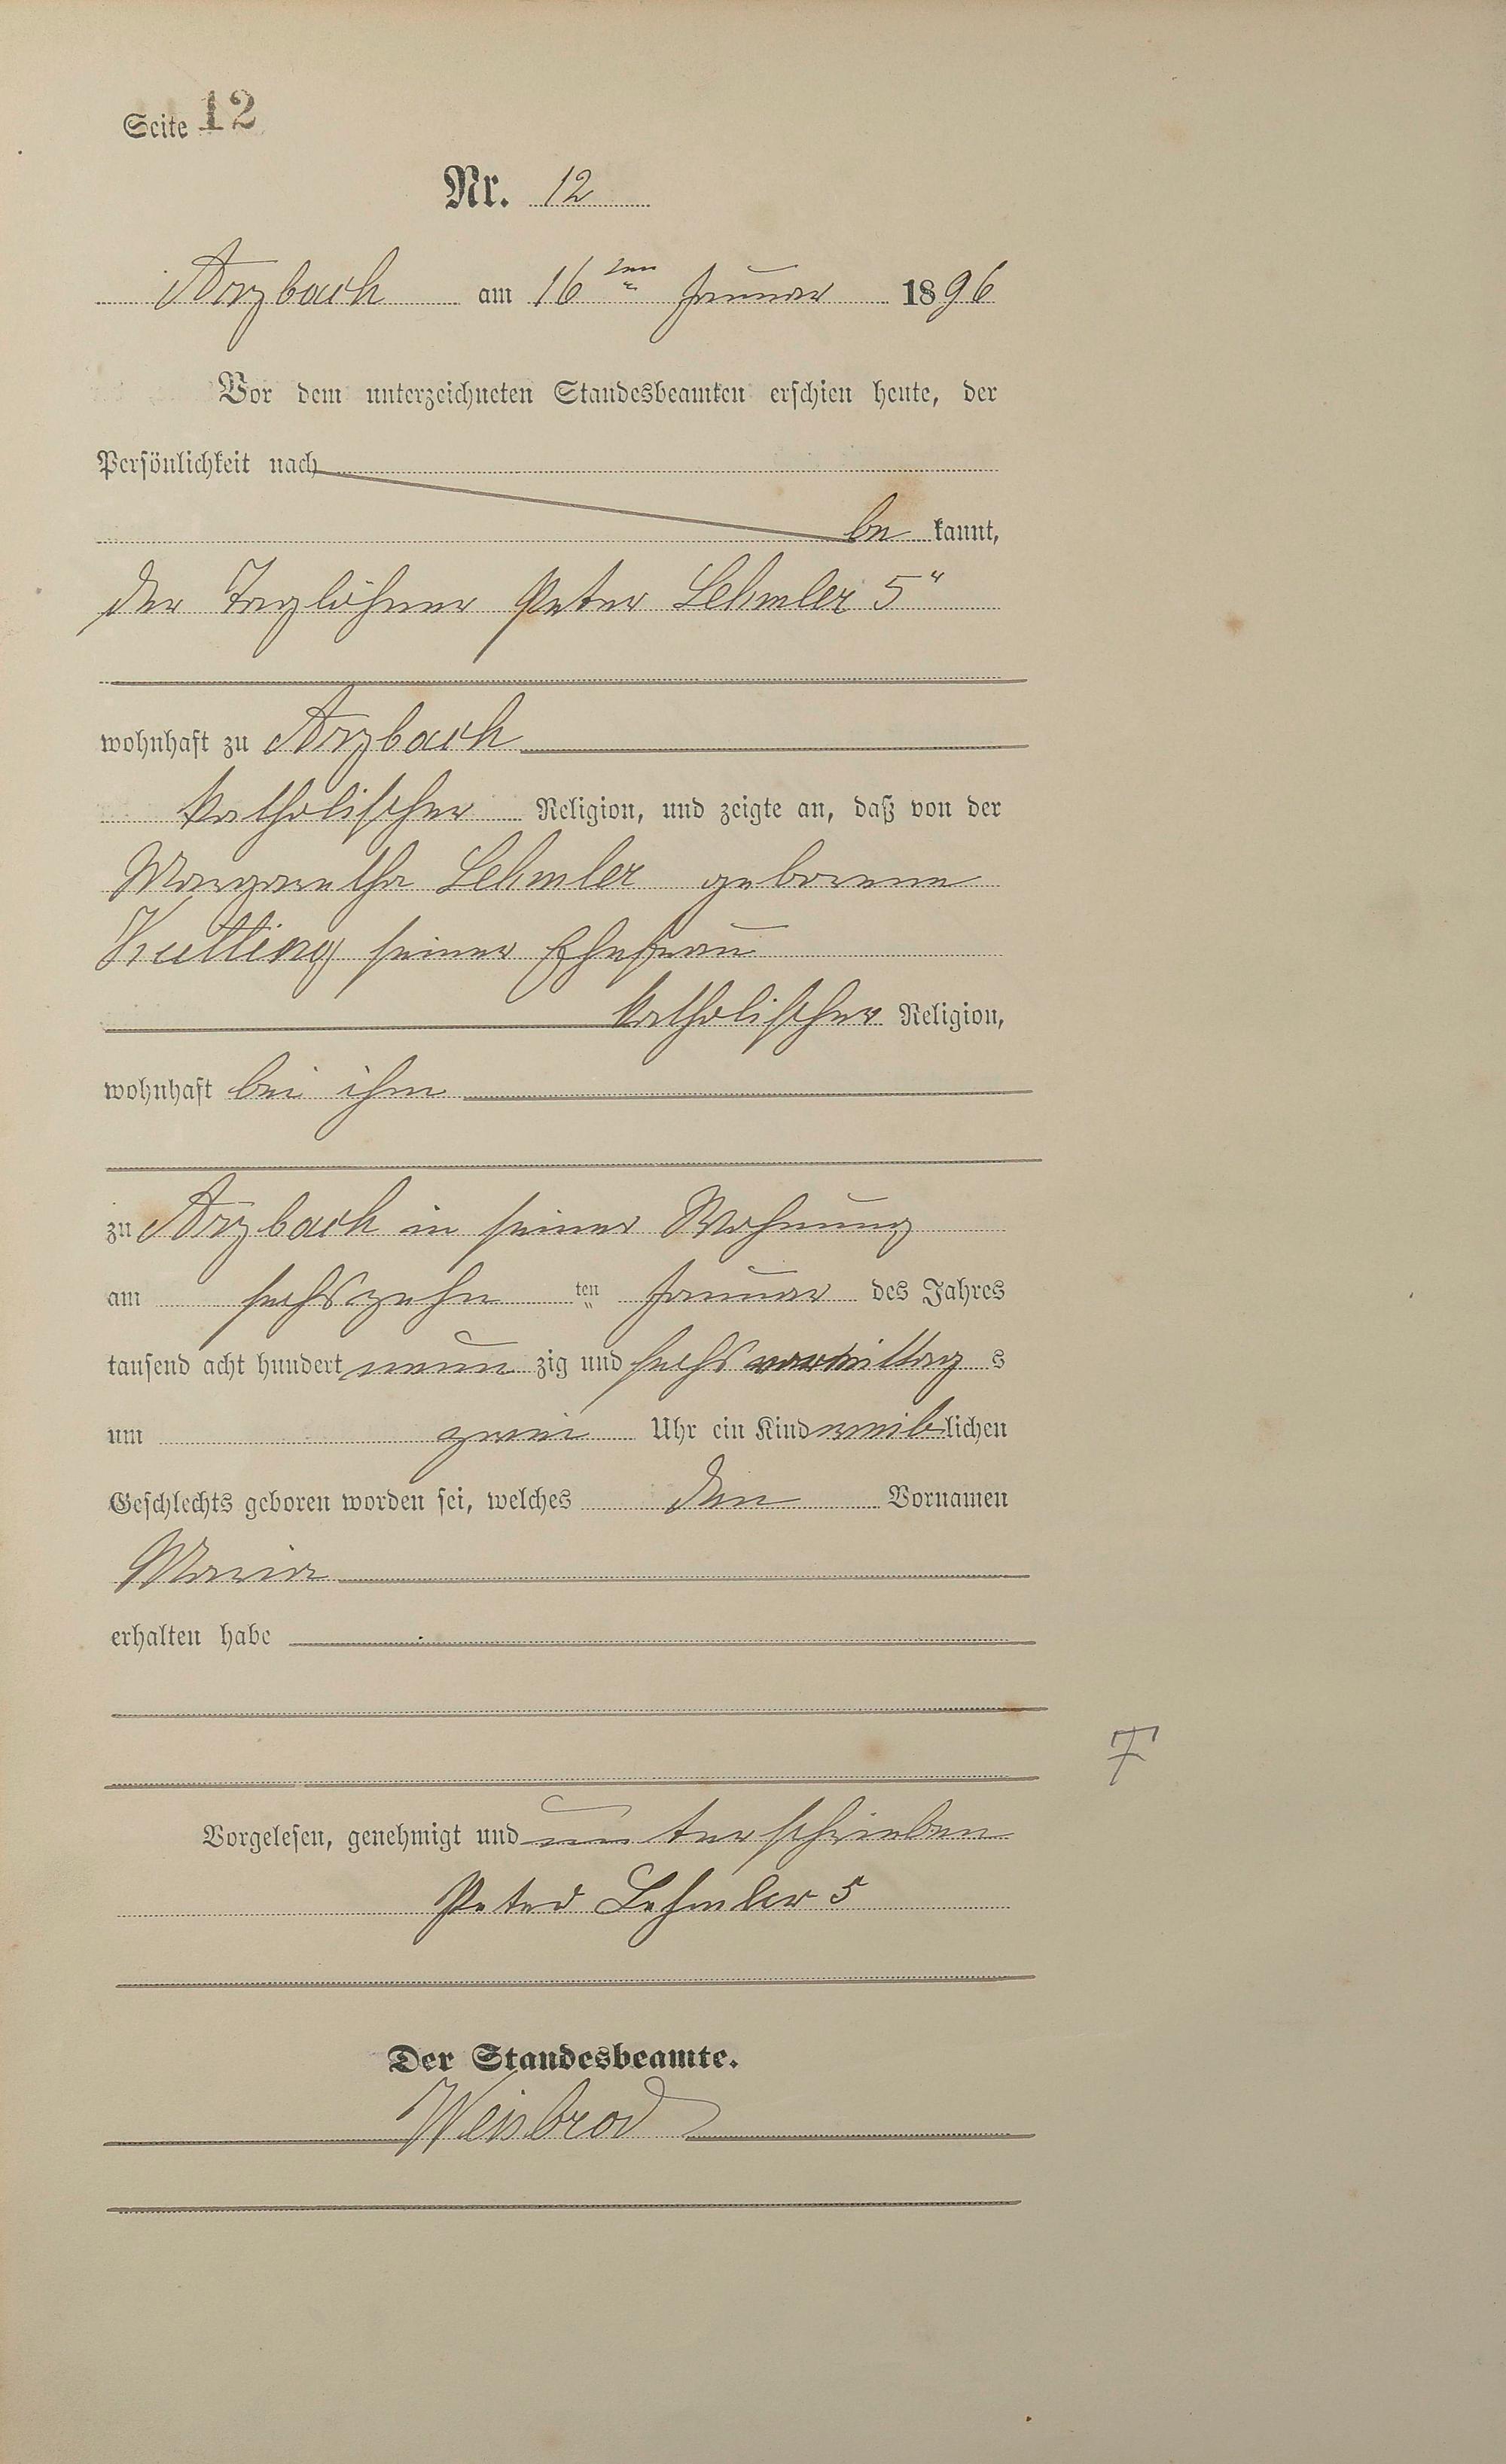 Seite 12
Nr. 12
Arzbach am 16ten Januar 1896
Vor dem unterzeichneten Standesbeamten erschien heute, der
Persönlichkeit nach
be kannt,
der Taglöhner Peter Lehmler 5"
wohnhaft zu Arzbach
katholischer Religion, und zeigte an, daß von der
Margaretha Lehmler geborene
Kutting seiner Ehefrau
katholischer Religion,
wohnhaft bei ihm
zu Arzbach in seiner Wohnung
am sechszehn ten Januar des Jahres
tausend acht hundert neun zig und sechs vormittag s
um zwei Uhr ein Kind weiblichen
Geschlechts geboren worden sei, welches den Vornamen
Maria
erhalten habe
F
Vorgelesen, genehmigt und unterschrieben
Peter Lehmler 5
Der Standesbeamte.
Weisbrod